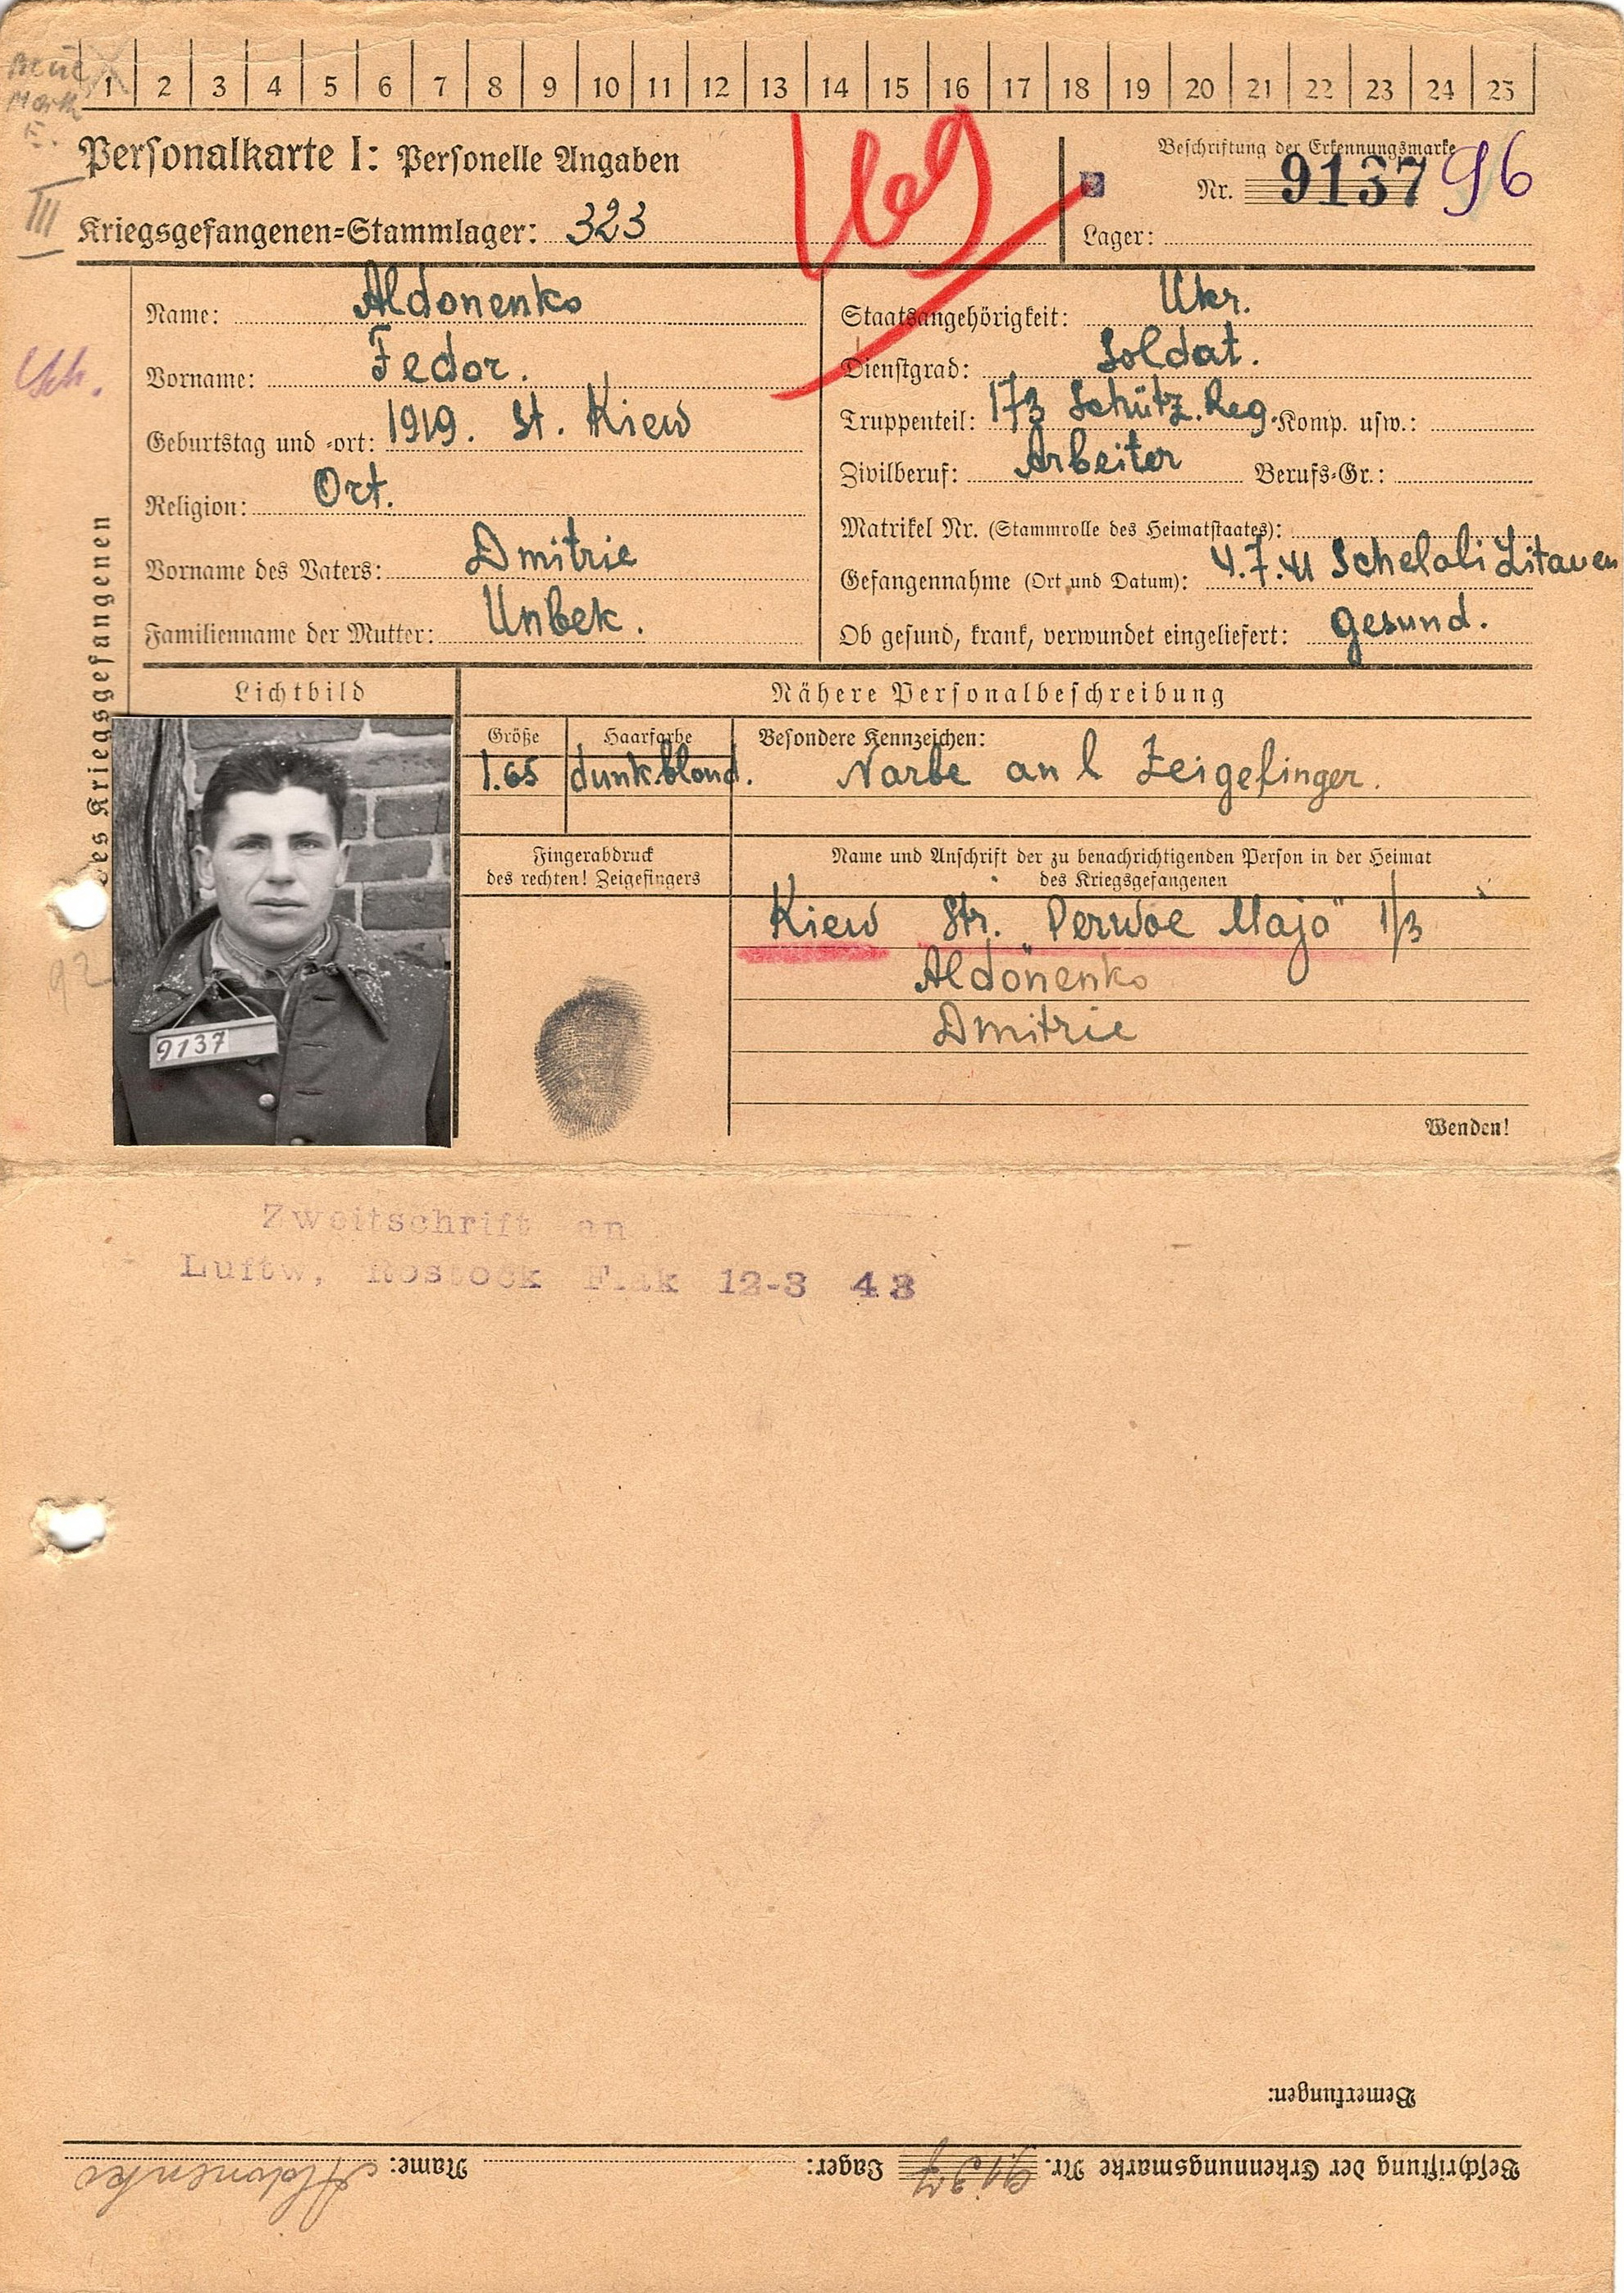 1 2 3 4 5 6 7 8 9 10 11 12 13 14 15 16 17 18 19 20 21 22 23 24 25
Personalkarte I: Personelle Angaben
Kriegsgefangenen=Stammlager: 323
III
Beschriftung der Erkennungsmarke
Nr. 9137 96
Lager:
des Kriegsgefangenen
Name: Aldonenko
Vorname: Fedor.
Geburtstag und =ort: 1919. St. Kiew
Religion: Ort.
Vorname des Vaters: Dmitrie
Familienname der Mutter: Unbek.
Staatsangehörigkeit: Ukr.
Dienstgrad: Soldat.
Truppenteil: 173 Schütz. Reg. Komp. usw.:
Zivilberuf: Arbeiter Berufs=Gr.:
Matrikel Nr. (Stammrolle des Heimatstaates):
Gefangennahme (Ort und Datum): 4.7.41 Schelali Litauen
Ob gesund, krank, verwundet eingeliefert: gesund.
Lichtbild
9137
Nähere Personalbeschreibung
Größe
1.65
Haarfarbe
dunk.blond.
Besondere Kennzeichen:
Narbe an l Zeigefinger.
Fingerabdruck
des rechten! Zeigefingers
Name und Anschrift der zu benachrichtigenden Person in der Heimat
des Kriegsgefangenen
Kiew Str. "Perwoe Majo" 1/3
Aldonenko
Dmitrie
Wenden!
92
Zweitschrift an
Luftw, Rostock Flak 12-3 43
Bemerkungen:
Beschriftung der Erkennungsmarke Nr. 9137 Lager: Name: Aldonenko